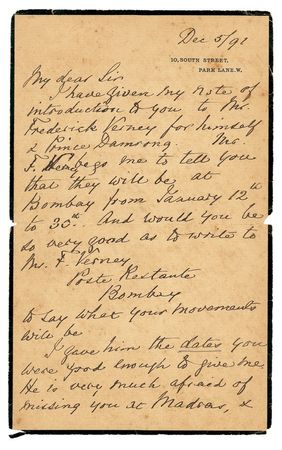 Dec 5/91
10, SOUTH STREET,
PARK LANE. W.
My dear Sir
I have given my note of
introduction to you to Mr.
Frederick Verney for himself
& Prince Damrong. Mr.
F. Verney begs me to tell you
that they will be at
Bombay from January 12th
to 30th. And would you be
so very good as to write to
Mr. F. Verney
Poste Restante
Bombay
to say what your movements
will be
I gave him the dates you
were good enough to give me.
He is very much afraid of
missing you at Madras, &